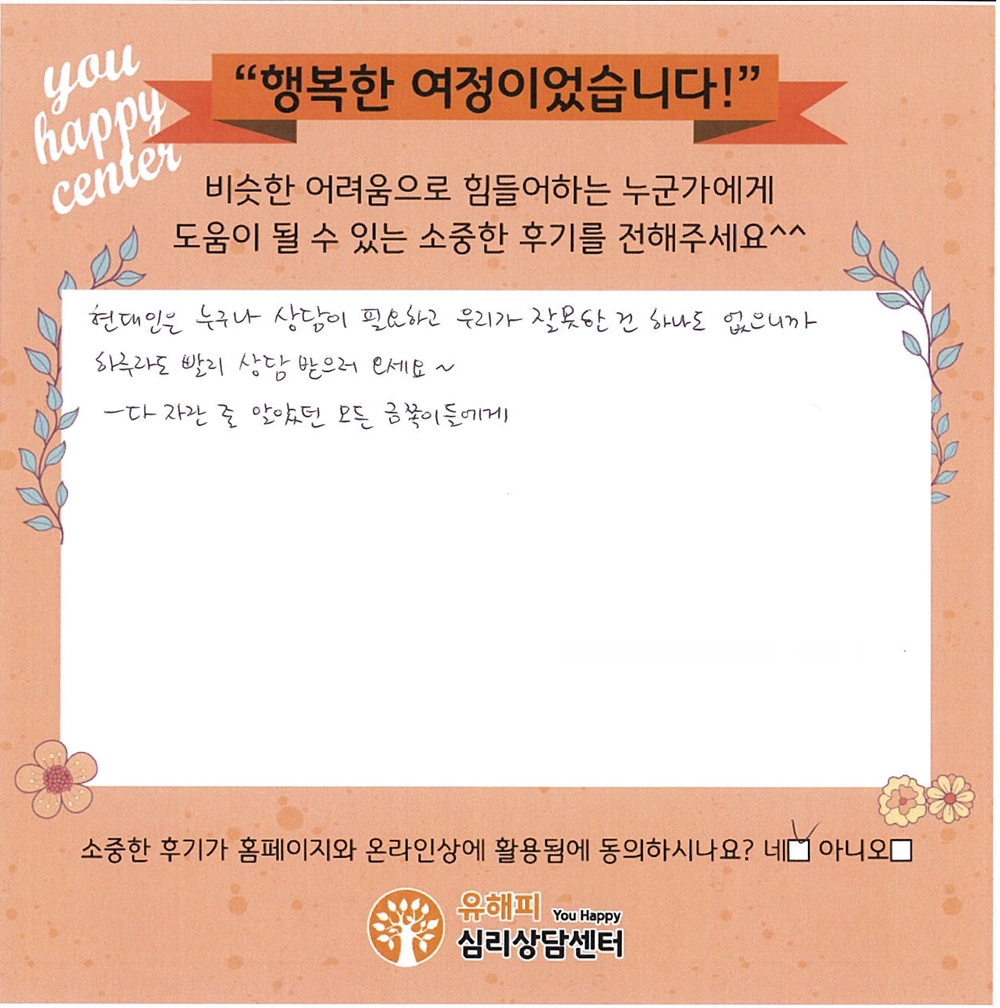 you
happy
center
“행복한 여정이었습니다!”
비슷한 어려움으로 힘들어하는 누군가에게
도움이 될 수 있는 소중한 후기를 전해주세요^^
현대인은 누구나 상담이 필요하고 우리가 잘못한 건 하나도 없으니까
하루라도 빨리 상담 받으러 오세요~
-다 자란 줄 알았던 모든 금쪽이들에게
소중한 후기가 홈페이지와 온라인상에 활용됨에 동의하시나요? 네☑ 아니오□
유해피 You Happy
심리상담센터